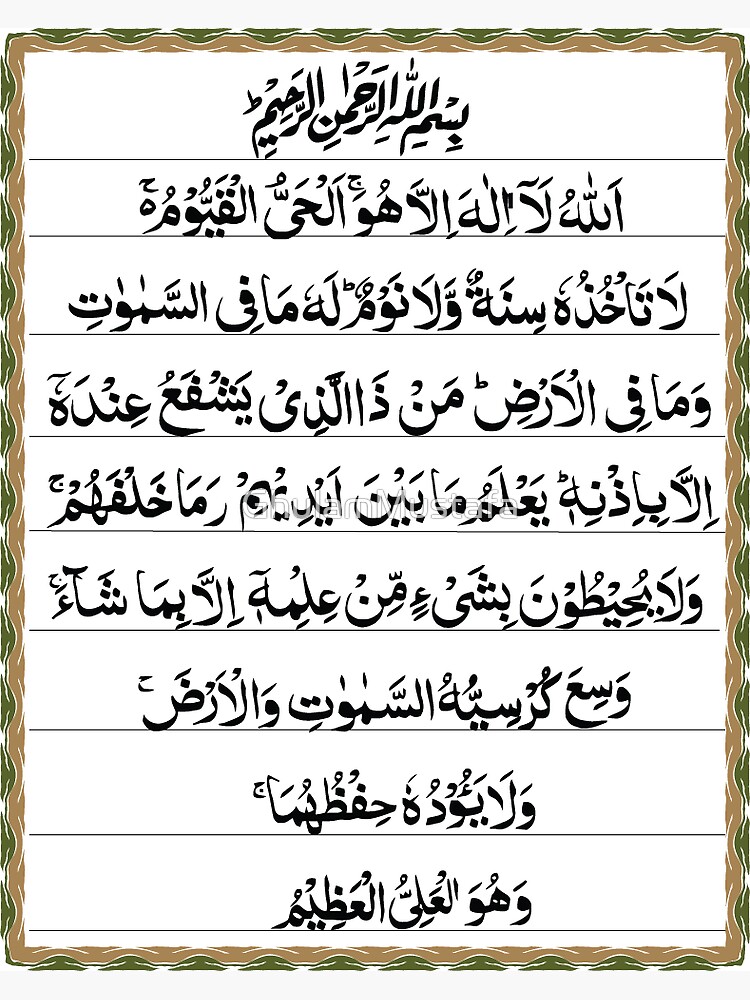 بِسْمِ اللّٰهِ الرَّحْمٰنِ الرَّحِيْمِ ؕ
اَللّٰهُ لَاۤ اِلٰهَ اِلَّا هُوَ ۚ اَلْحَىُّ الْقَيُّوْمُ ۬ۚ
لَا تَاْخُذُهٗ سِنَةٌ وَّلَا نَوْمٌ ؕ لَهٗ مَا فِى السَّمٰوٰتِ
وَمَا فِى الْاَرْضِ ؕ مَنْ ذَا الَّذِىْ يَشْفَعُ عِنْدَهٗۤ
اِلَّا بِاِذْنِهٖ ؕ يَعْلَمُ مَا بَيْنَ اَيْدِيْهِمْ رَمَا خَلْفَهُمْ ۚ
وَلَا يُحِيْطُوْنَ بِشَىْءٍ مِّنْ عِلْمِهٖۤ اِلَّا بِمَا شَآءَ ۚ
وَسِعَ كُرْسِيُّهُ السَّمٰوٰتِ وَالْاَرْضَ ۚ
وَلَا يَــُٔوْدُهٗ حِفْظُهُمَا ۚ
وَهُوَ الْعَلِىُّ الْعَظِيْمُ
GhulamMustafa